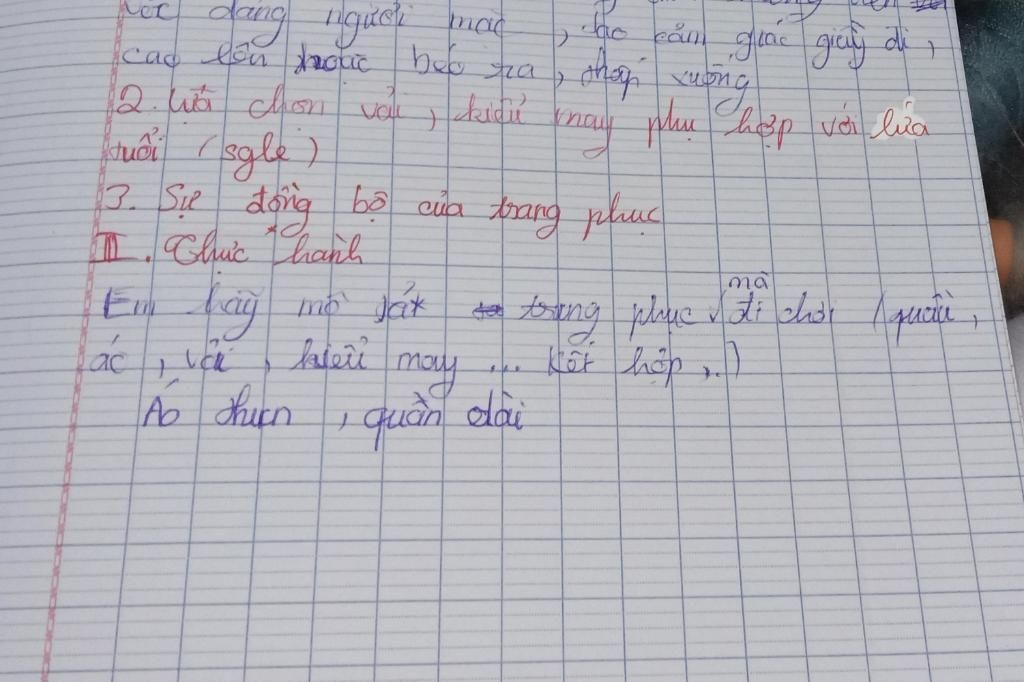 vóc dáng người mặc, tạo cảm giác giầy đi,
cao lên hoặc béo ra, thấp xuống
2. Lựa chọn vải, kiểu may phù hợp với lứa
tuổi (sgk)
3. Sự đồng bộ của trang phục
II. Thực hành
Em hãy mô tả trang phục mà đi chơi (quần,
áo, vải, kiểu may ... kết hợp,..)
Áo thun, quần dài